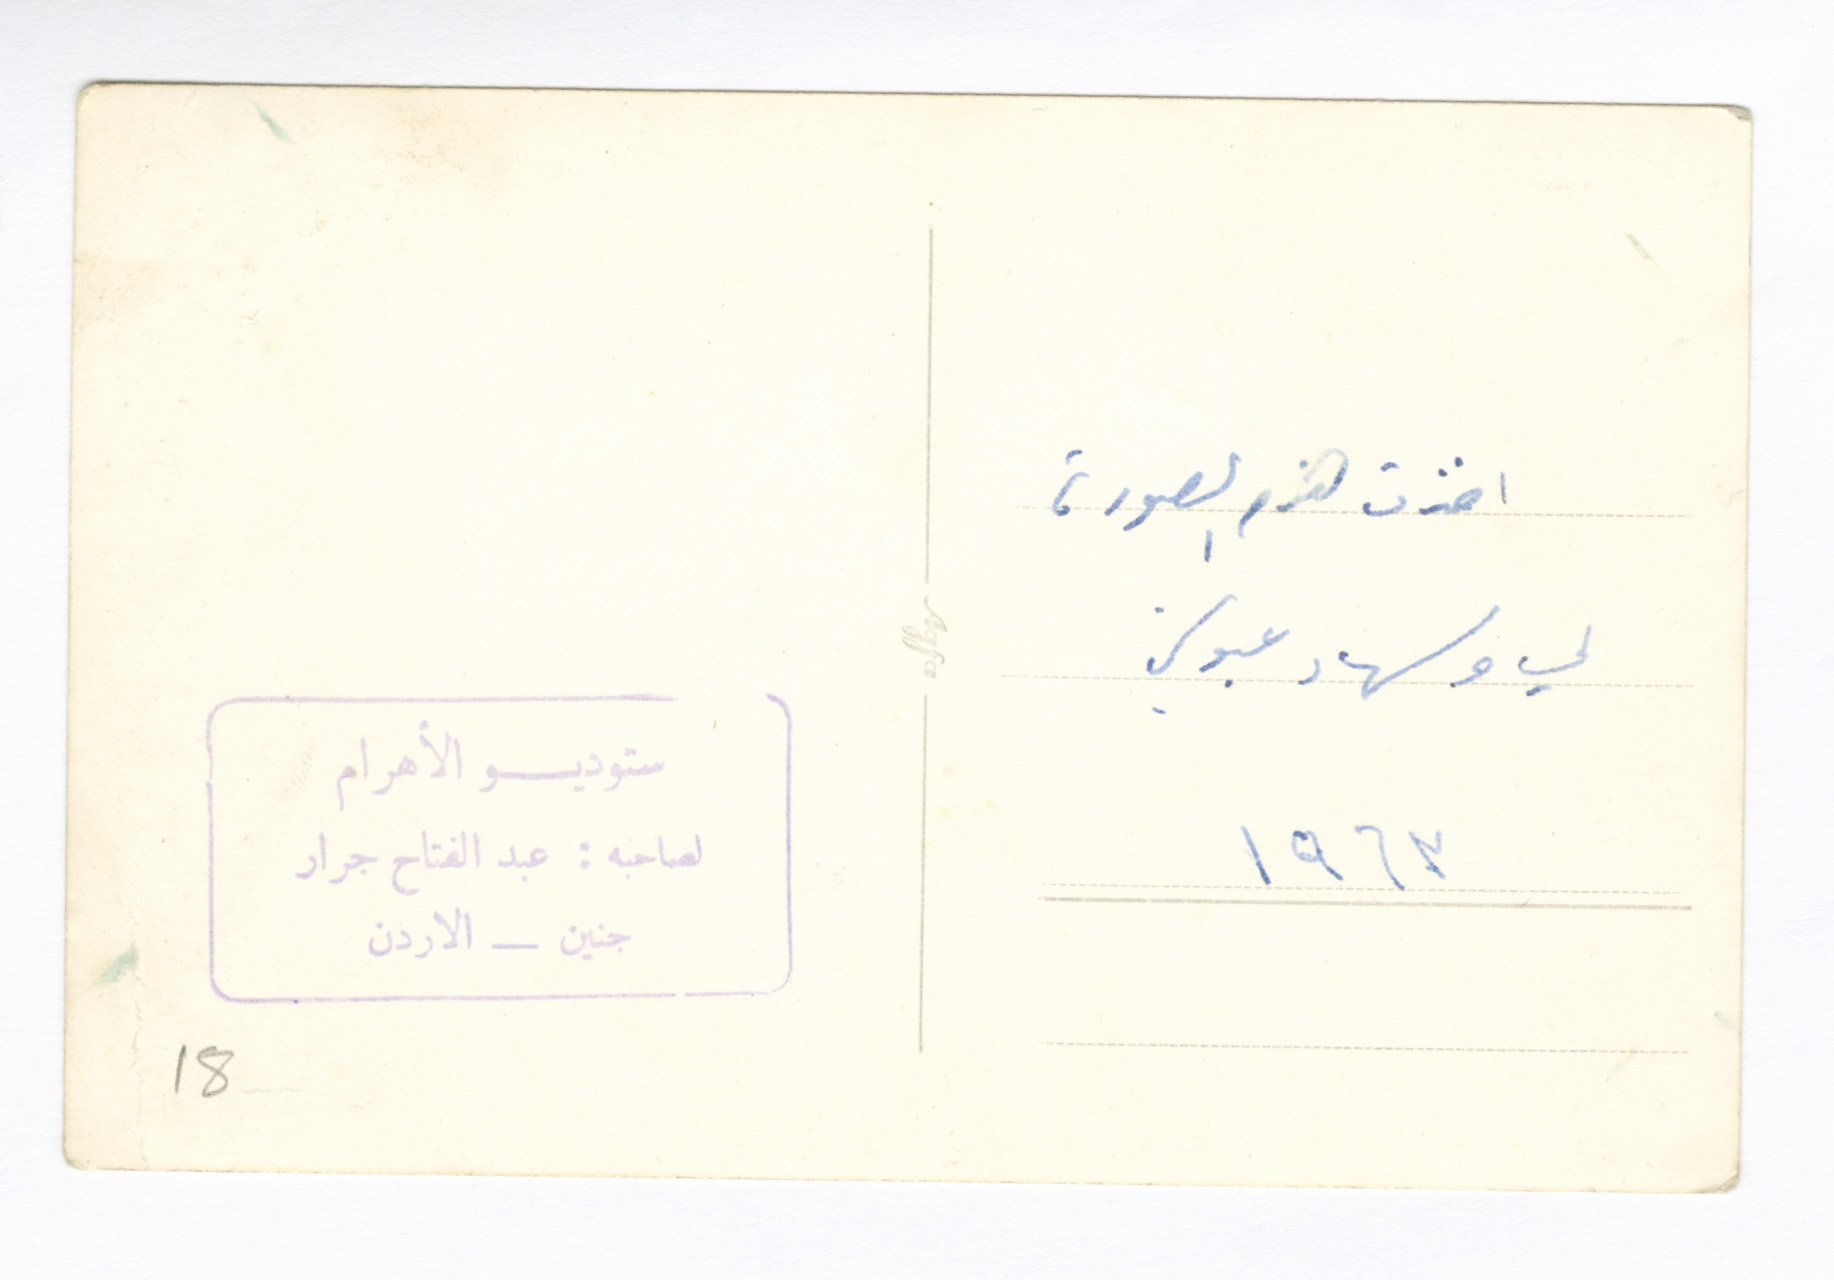 اخذت هذه الصورة
لي و سهاد عبوشي
١٩٦٢
Agfa
ستوديو الأهرام
لصاحبه : عبد الفتاح جرار
جنين — الاردن
18